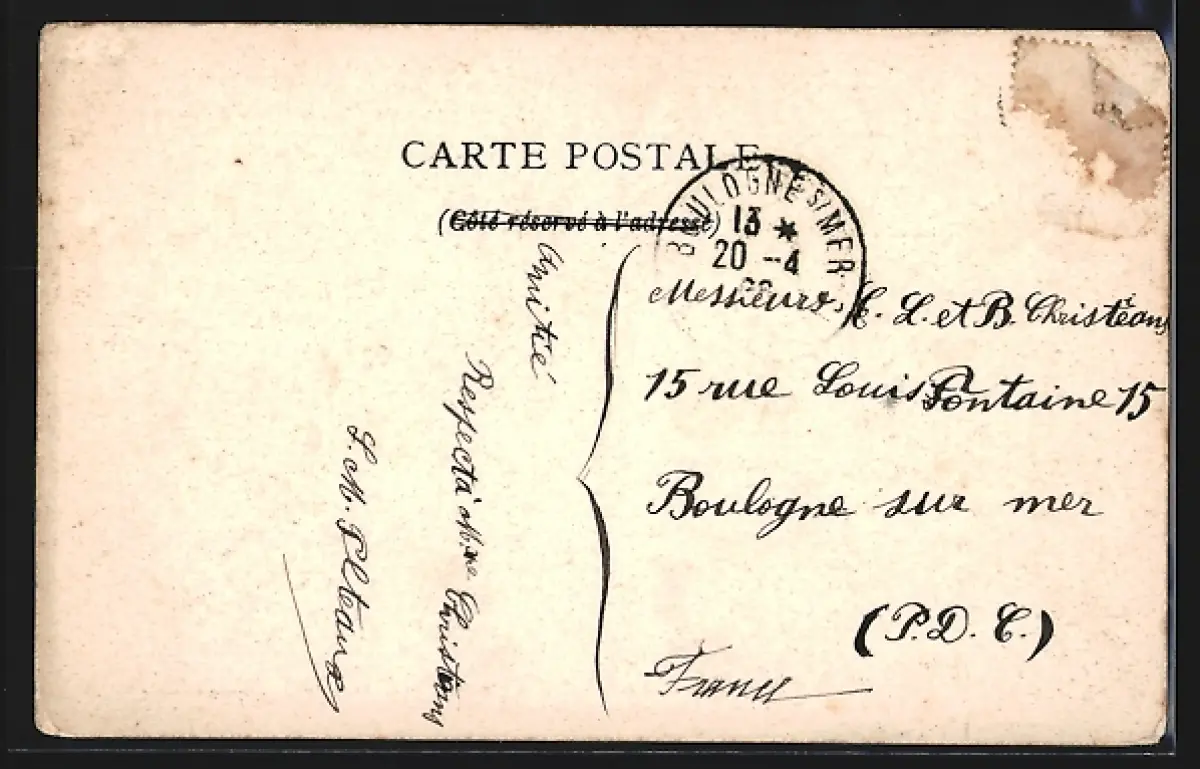 CARTE POSTALE
(Côté réservé à l'adresse)
BOULOGNE S/MER
13 *
20 -4
Messieurs, C. L. et B. Christiaens
15 rue Louis Fontaine 15
Boulogne sur mer
(P.D.C.)
France
Amitié
Respect à Mme Christiaens
L. M.